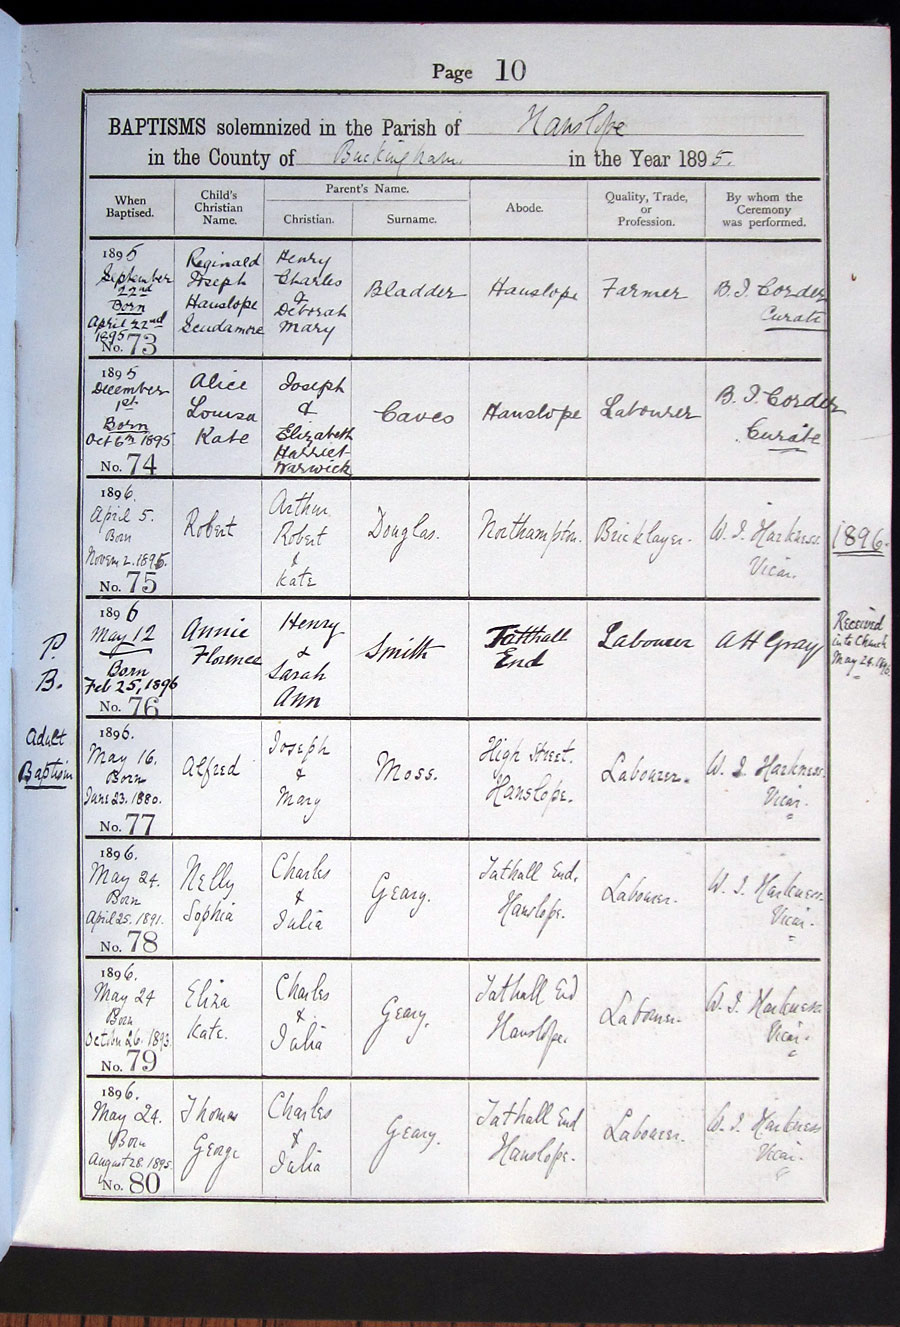 Page 10
BAPTISMS solemnized in the Parish of Hanslope
in the County of Buckingham. in the Year 1895.
When Baptised.
Child's Christian Name.
Parent's Name.
Christian.
Surname.
Abode.
Quality, Trade, or Profession.
By whom the Ceremony was performed.
1895
September
22nd
Born
April 22nd
1895
No. 73
Reginald
Joseph
Hanslope
Scudamore
Henry
Charles
&
Deborah
Mary
Bladder
Hanslope
Farmer
B. J. Corder
Curate
1895
December
1st
Born
Oct 6th 1895
No. 74
Alice
Louisa
Kate
Joseph
&
Elizabeth
Harriet
Warwick
Caves
Hanslope
Labourer
B. J. Corder
Curate
1896.
April 5.
Born
Novem 2. 1895.
No. 75
Robert
Arthur
Robert
&
Kate
Douglas.
Northampton.
Bricklayer.
W. J. Harkness
Vicar.
1896.
P.
B.
1896
May 12
Born
Feb 25, 1896
No. 76
Annie
Florence
Henry
&
Sarah
Ann
Smith
Tatthall
End
Labourer
A H Gray
Received
into Church
May 24. 1896
Adult
Baptism
1896.
May 16.
Born
June 23. 1880.
No. 77
Alfred
Joseph
&
Mary
Moss.
High Street.
Hanslope.
Labourer.
W. J. Harkness.
Vicar.
1896.
May 24.
Born
April 25. 1891.
No. 78
Nelly
Sophia
Charles
&
Julia
Geary.
Tathall End.
Hanslope.
Labourer.
W. J. Harkness.
Vicar.
1896.
May 24
Born
October 26. 1893.
No. 79
Eliza
Kate.
Charles
&
Julia
Geary.
Tathall End
Hanslope.
Labourer.
W. J. Harkness
Vicar.
1896.
May 24.
Born
August 28. 1895.
No. 80
Thomas
George
Charles
&
Julia
Geary.
Tathall End
Hanslope.
Labourer.
W. J. Harkness
Vicar.